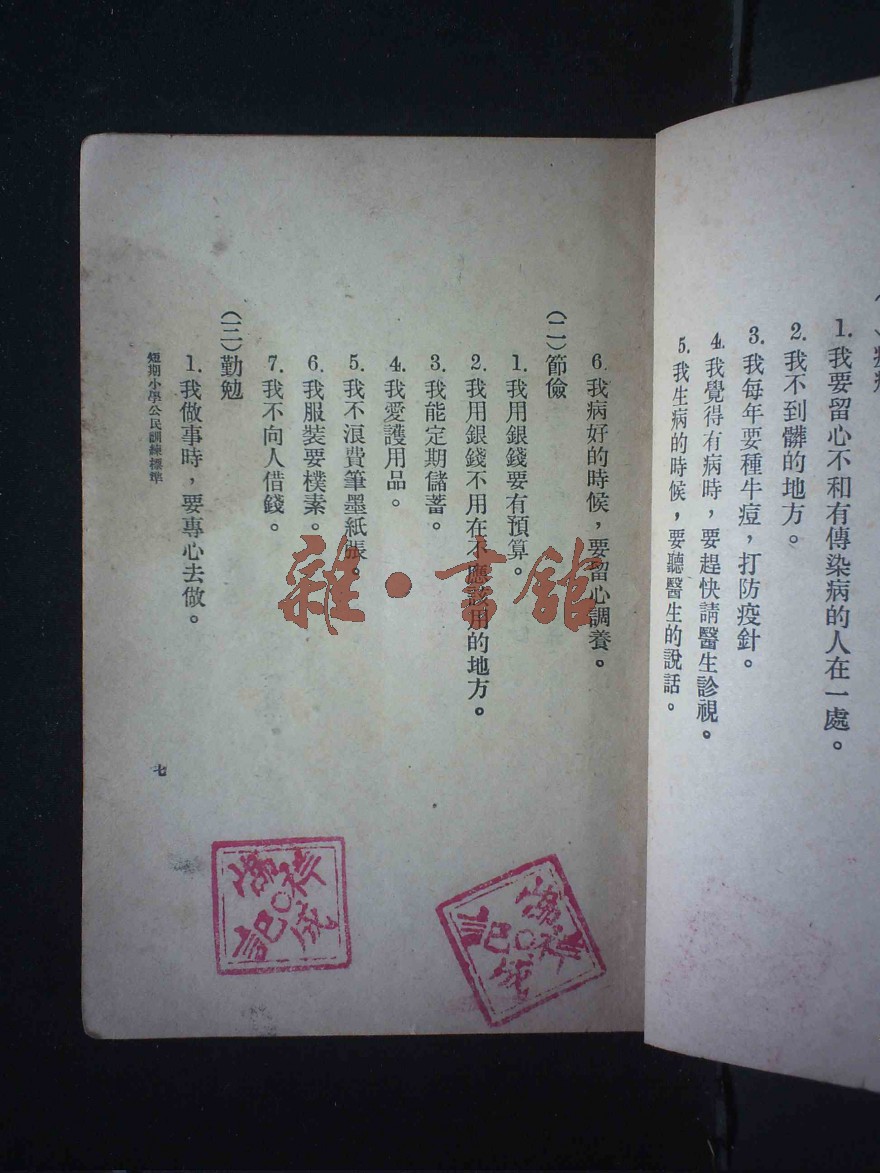 1. 我要留心不和有傳染病的人在一處。
2. 我不到髒的地方。
3. 我每年要種牛痘，打防疫針。
4. 我覺得有病時，要趕快請醫生診視。
5. 我生病的時候，要聽醫生的說話。
6. 我病好的時候，要留心調養。
(二)節儉
1. 我用銀錢要有預算。
2. 我用銀錢不用在不應該用的地方。
3. 我能定期儲蓄。
4. 我愛護用品。
5. 我不浪費筆墨紙張。
6. 我服裝要樸素。
7. 我不向人借錢。
(三)勤勉
1. 我做事時，要專心去做。
短期小學公民訓練標準
七
雜·書館